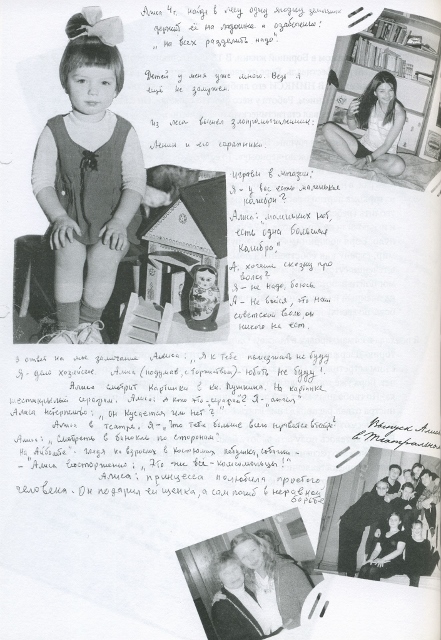 Алиса 4 г. найдя в лесу одну ягодку земляники
держит её на ладошке и озабоченно:
„на всех разделить надо".
Детей у меня уже много. Ведь я
ещё не замужем.
Из леса вышел злопримышленник:
Ленин и его соратники.
играем в магазин:
Я – у вас есть маленькие
калибри?
Алиса: „маленьких нет,
есть одна большая
калибра."
А, хочешь сказку про
волка?
Я – не надо, боюсь
А – Не бойся, это наш
советский волк, он
никого не ест.
В ответ на моё замечание Алиса: „Я к тебе приезжать не буду
Я – дело хозяйское. Алиса (подумав, с торжеством) – любить не буду!
Алиса смотрит картинки в кн. Пушкина. На картинке
шестикрылый серафим. Алиса: А кто это – Я – „ангел"
Алиса испуганно: „он кусается или нет?"
Алиса в театре. Я – „Что тебе больше всего нравится в театре?
Алиса: „Смотреть в бинокль по сторонам"
На „Айболите" глядя на взрослых в костюмах
– Алиса восторженно: „Это же все – комсомольцы!"
Алиса: принцесса полюбила простого
человека. Он подарил ей щенка, а сам погиб в неравной
борьбе
Выпуск Алисы
в Театральном